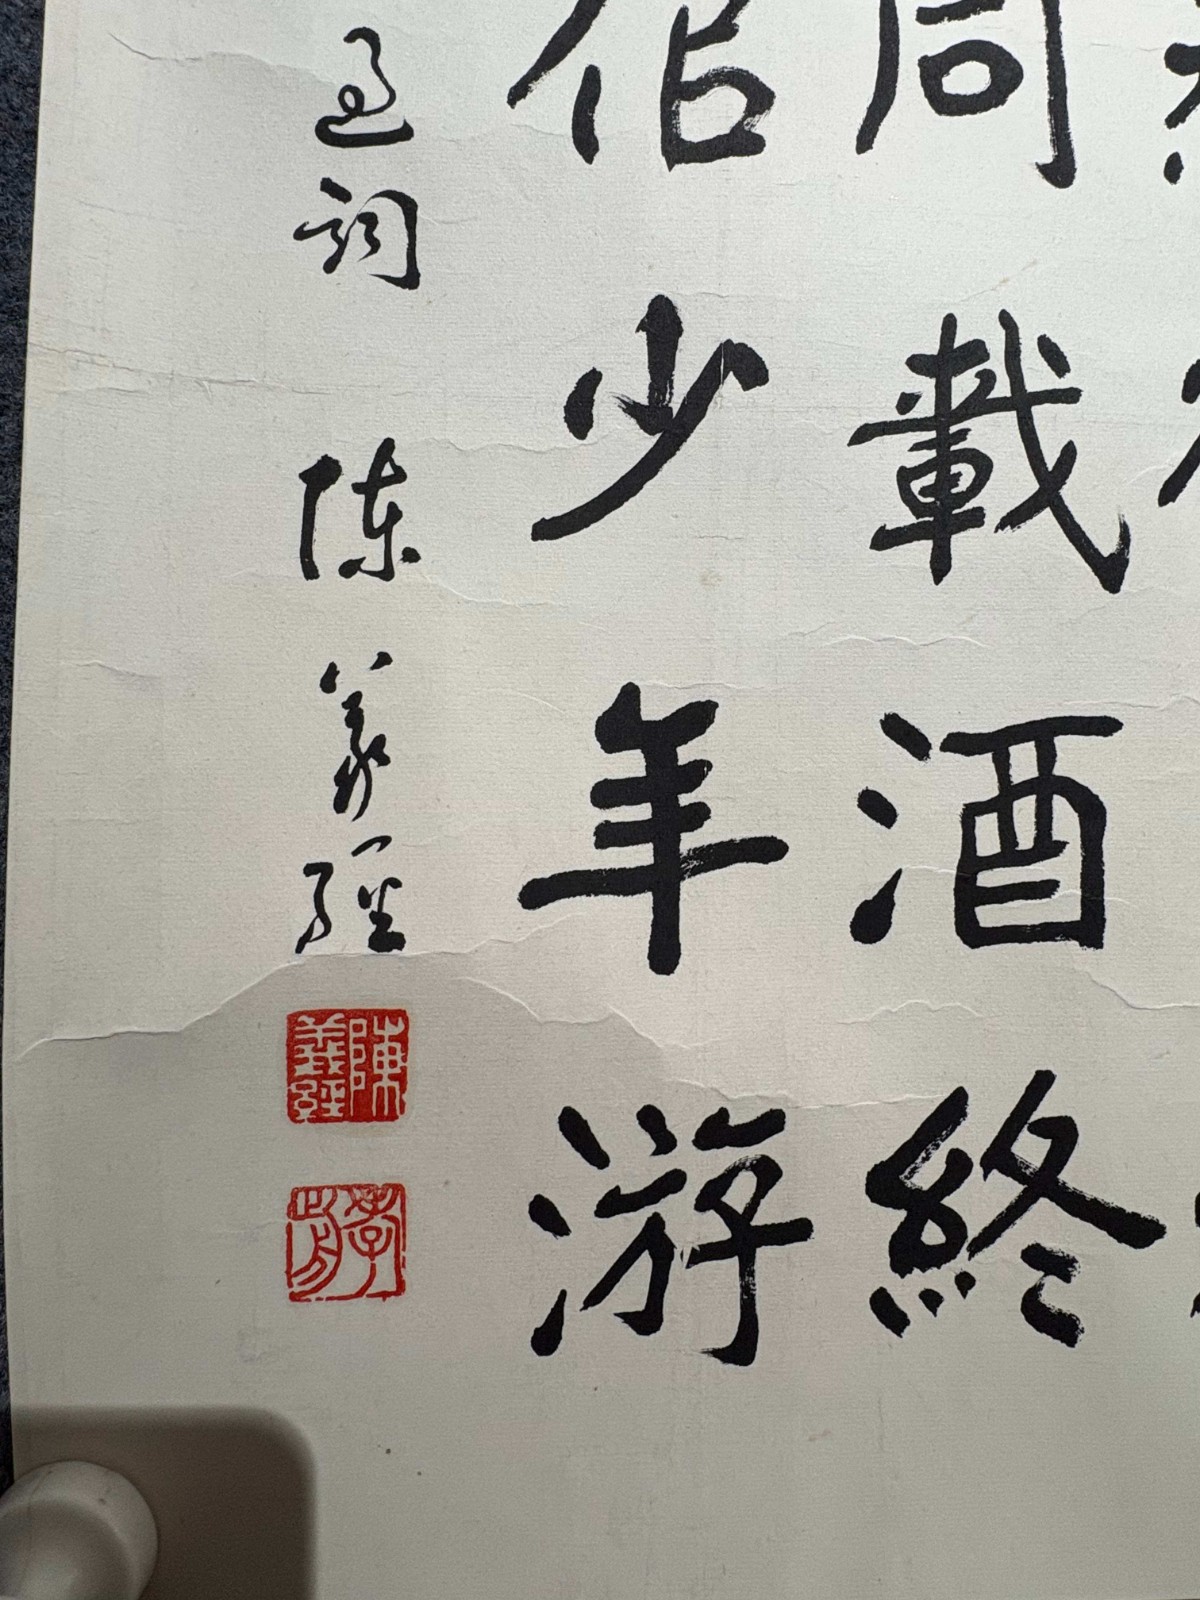 同載酒終
佀少年游
過詞 陳義經
陳義經